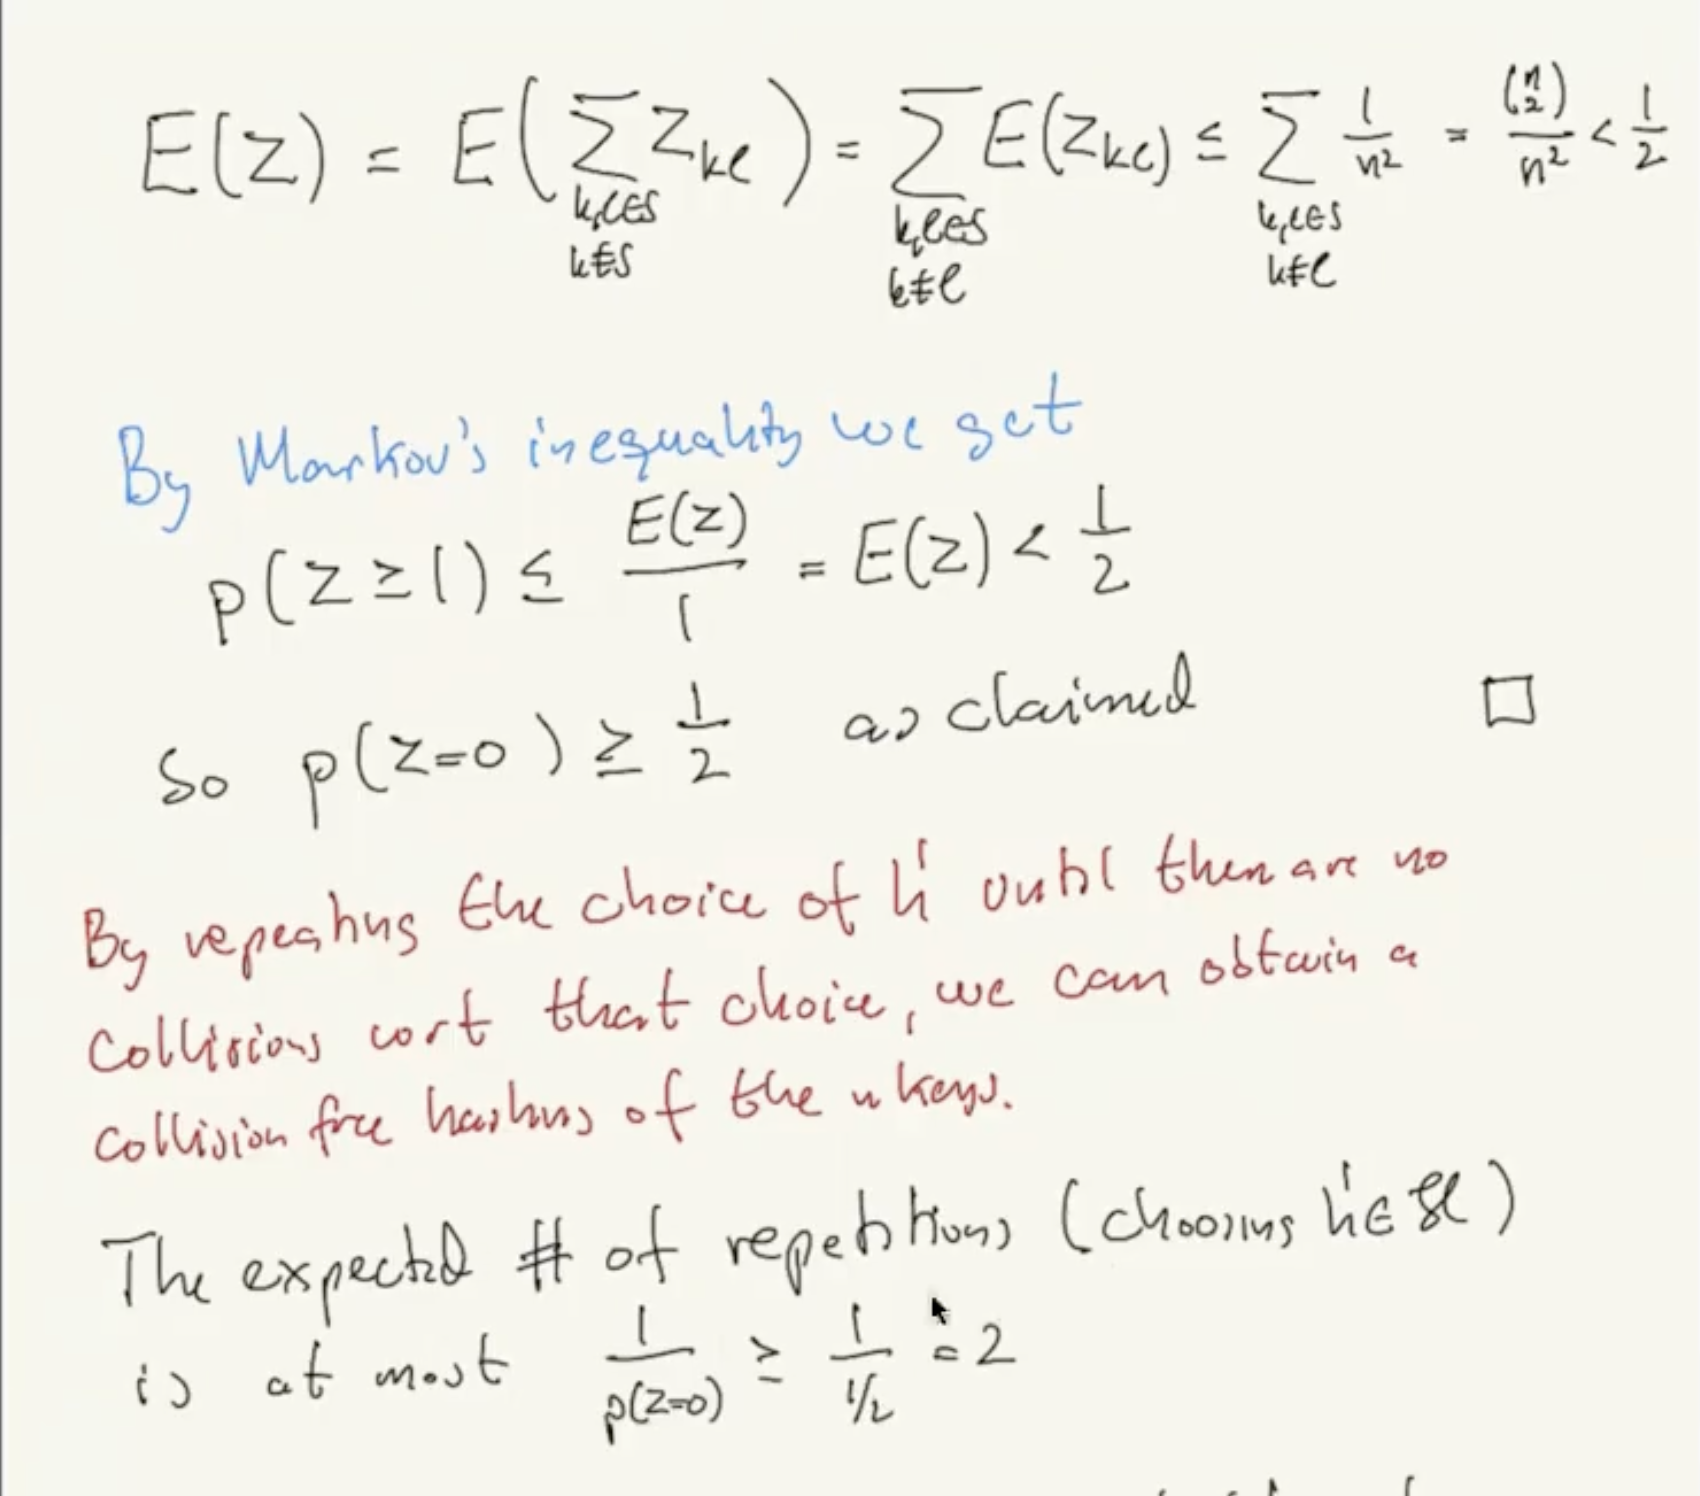 E(Z) = E(∑ Z_{kl}) = ∑ E(Z_{kl}) ≤ ∑ 1/n² = (n 2)/n² < 1/2
k,l∈S k,l∈S k,l∈S
k≠S k≠l k≠l
By Markov's inequality we get
p(Z ≥ 1) ≤ E(Z)/1 = E(Z) < 1/2
So p(Z=0) ≥ 1/2 as claimed □
By repeating the choice of h' until there are no
collisions wrt that choice, we can obtain a
collision free hashing of the n keys.
The expected # of repetitions (choosing h'∈ℋ)
is at most 1/p(Z=0) ≥ 1/1/2 = 2